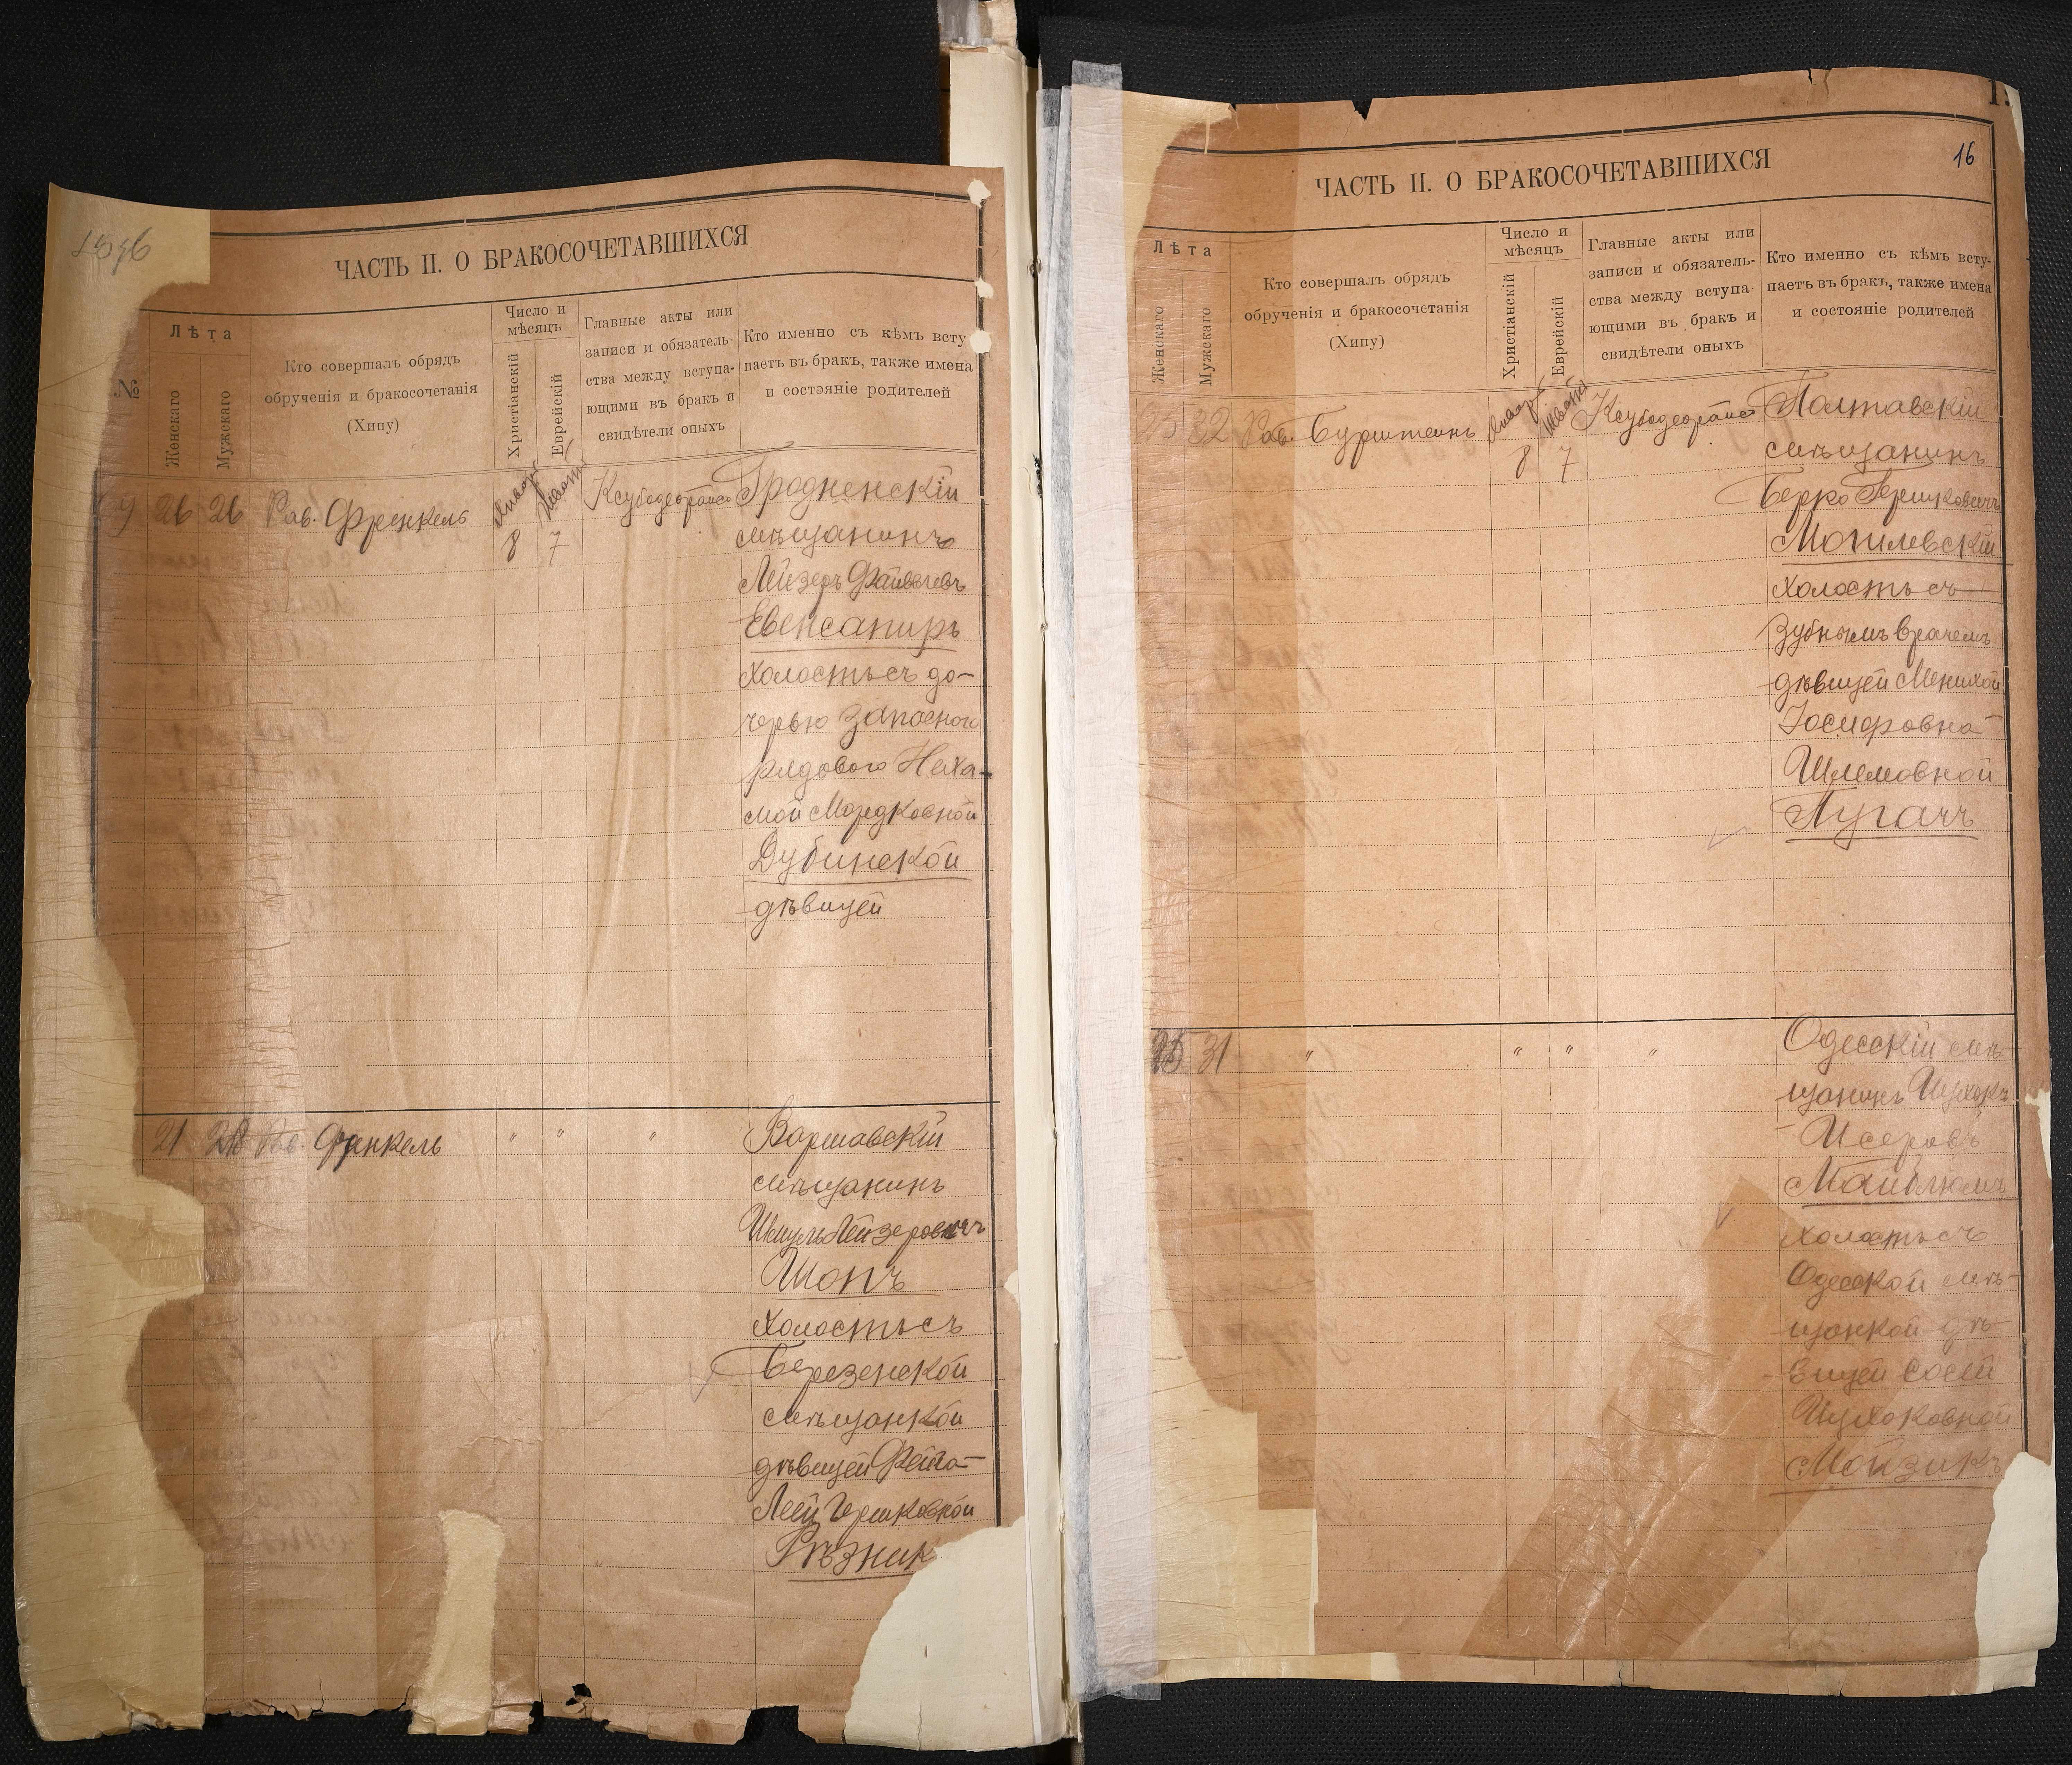 ЧАСТЬ II. О БРАКОСОЧЕТАВШИХСЯ
№
Лѣта
Женскаго
Мужскаго
Кто совершалъ обрядъ
обрученія и бракосочетанія
(Хипу)
Число и
мѣсяцъ
Христіанскій
Еврейскій
Главные акты или
записи и обязатель-
ства между вступа-
ющими въ бракъ и
свидѣтели оныхъ
Кто именно съ кѣмъ всту
паетъ въ бракъ, также имена
и состояніе родителей
26 26 Рав. Френкель
8 7
Гродненскій
мѣщанинъ
Лейзеръ
Евенсапиръ
холостъ съ до-
черью запасного
рядового Неха-
мой Мордковной
Дубинской
дѣвицей
21 28 Рав. Френкель " " "
Варшавскій
мѣщанинъ
Шмуль Лейзеровичъ
Шопъ
холостъ съ
Березенской
мѣщанкой
дѣвицей Фейга-
Леей Гершковной
Рѣзник
16
ЧАСТЬ II. О БРАКОСОЧЕТАВШИХСЯ
Лѣта
Женскаго
Мужскаго
Кто совершалъ обрядъ
обрученія и бракосочетанія
(Хипу)
Число и
мѣсяцъ
Христіанскій
Еврейскій
Главные акты или
записи и обязатель-
ства между вступа-
ющими въ бракъ и
свидѣтели оныхъ
Кто именно съ кѣмъ всту-
паетъ въ бракъ, также имена
и состояніе родителей
32 Рав. Бурштейнъ
8 7
Полтавскій
мѣщанинъ
Берко Гершковичъ
Могилевскій
холостъ съ
зубнымъ врачемъ
дѣвицей Менихой
Іосифовна
Шлемовной
Пугачъ
31 " " " "
Одесскій мѣ-
щанинъ Ицхокъ
Исеровъ
Майблюмъ
холостъ съ
Одесской мѣ-
щанкой дѣ-
вицей Сосей
Ицхоковной
Мойзикъ